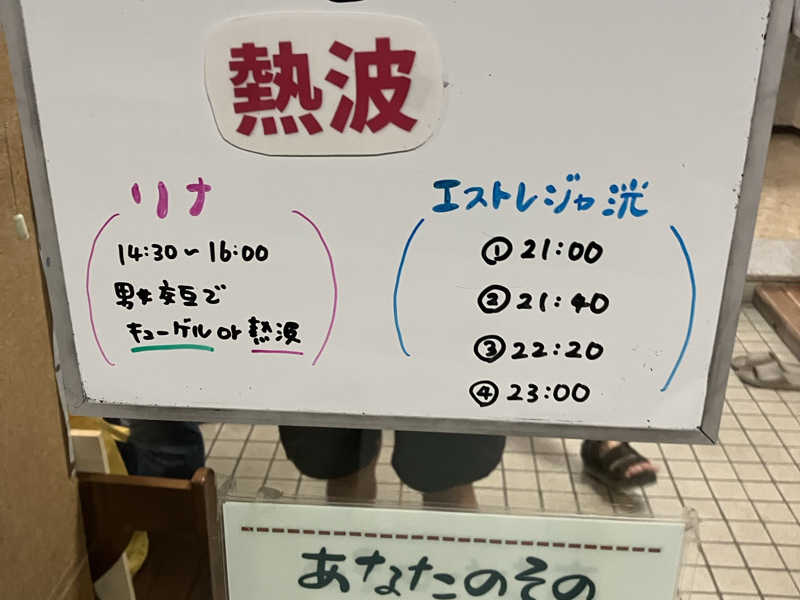 熱波
リナ
14:30〜16:00
男女交互で
キューゲル or 熱波
エストレジャ 洸
① 21:00
② 21:40
③ 22:20
④ 23:00
あなたのその